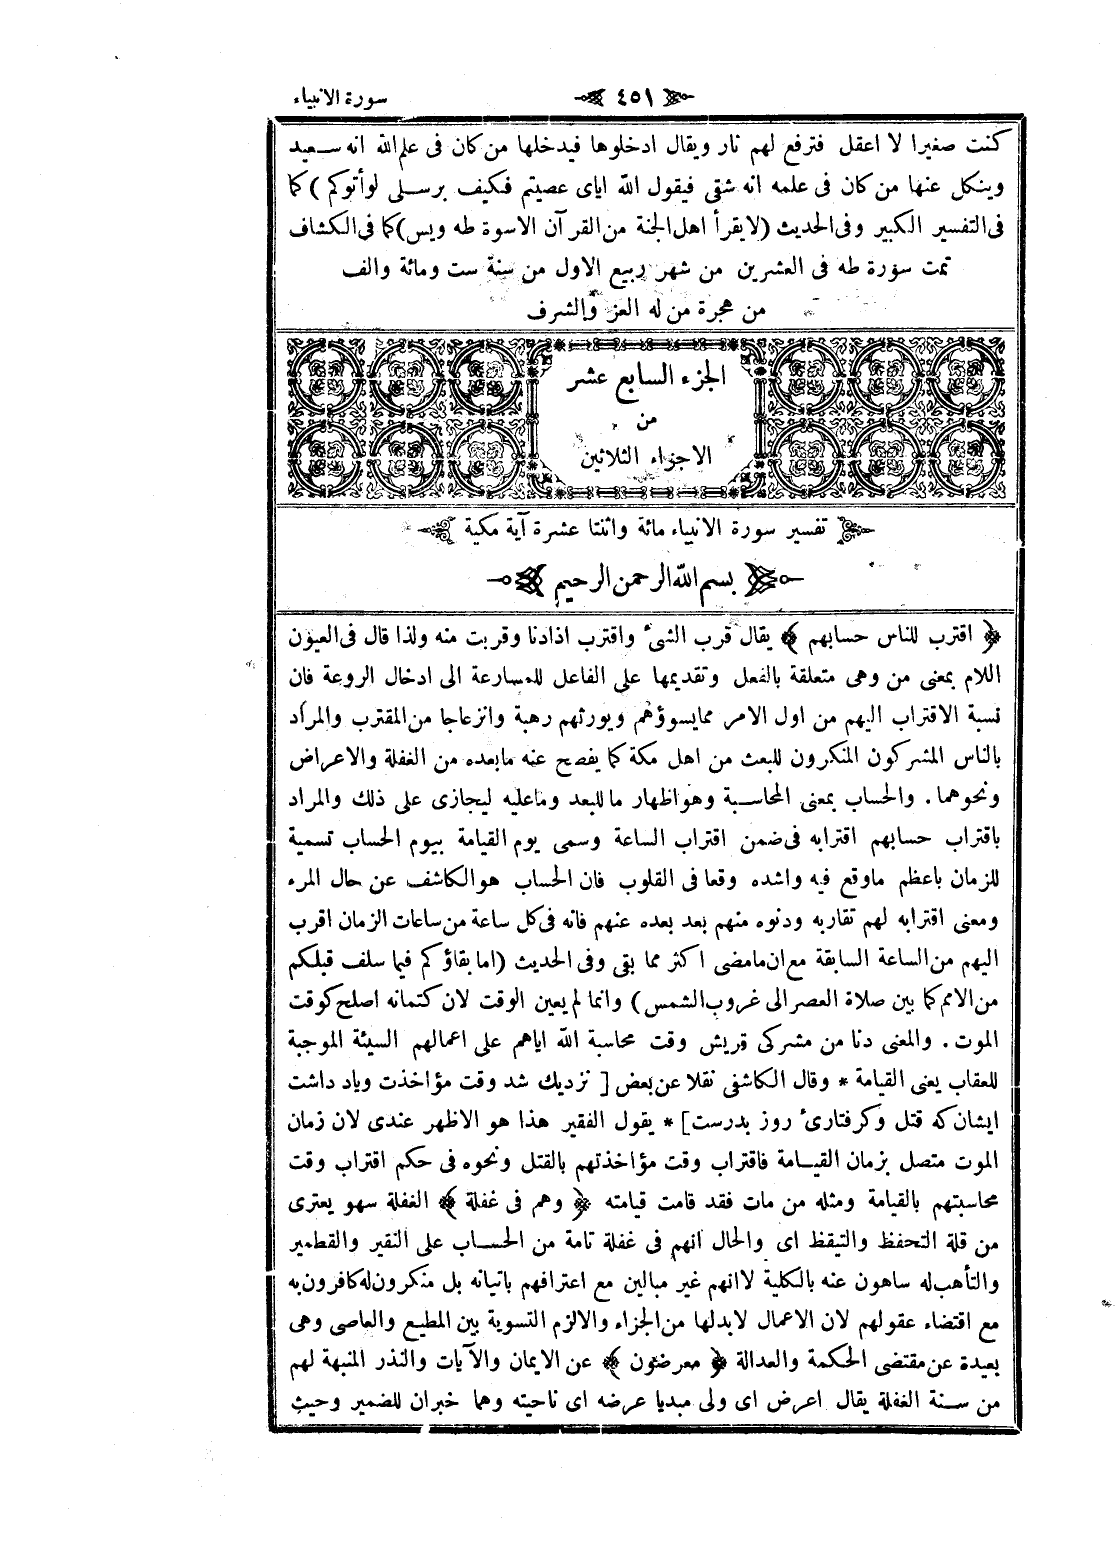 سورة الانبياء
﴿ ٤٥١ ﴾
كنت صغيرا لا اعقل فترفع لهم نار ويقال ادخلوها فيدخلها من كان فى علم الله انه سعيد
وينكل عنها من كان فى علمه انه شقى فيقول الله اياى عصيتم فكيف برسلى لوأتوكم ) كما
فى التفسير الكبير وفى الحديث (لا يقرأ اهل الجنة من القرآن الاسورة طه ويس) كما فى الكشاف
تمت سورة طه فى العشرين من شهر ربيع الاول من سنة ست ومائة والف
من هجرة من له العز والشرف
الجزء السابع عشر
من
الاجزاء الثلاثين
﴿ تفسير سورة الانبياء مائة واثنتا عشرة آية مكية ﴾
﴿ بسم الله الرحمن الرحيم ﴾
﴿ اقترب للناس حسابهم ﴾ يقال قرب الشئ واقترب اذادنا وقربت منه ولذا قال فى العيون
اللام بمعنى من وهى متعلقة بالفعل وتقديمها على الفاعل للمسارعة الى ادخال الروعة فان
نسبة الاقتراب اليهم من اول الامر ممايسوؤهم ويورثهم رهبة وانزعاجا من المقترب والمراد
بالناس المشركون المنكرون للبعث من اهل مكة كما يفصح عنه مابعده من الغفلة والاعراض
ونحوهما . والحساب بمعنى المحاسبة وهواظهار ماللعبد وماعليه ليجازى على ذلك والمراد
باقتراب حسابهم اقترابه فى ضمن اقتراب الساعة وسمى يوم القيامة بيوم الحساب تسمية
للزمان باعظم ماوقع فيه واشده وقعا فى القلوب فان الحساب هوالكاشف عن حال المرء
ومعنى اقترابه لهم تقاربه ودنوه منهم بعد بعده عنهم فانه فى كل ساعة من ساعات الزمان اقرب
اليهم من الساعة السابقة مع ان مامضى اكثر مما بقى وفى الحديث (اما بقاؤكم فيما سلف قبلكم
من الامم كما بين صلاة العصر الى غروب الشمس) وانما لم يعين الوقت لان كتمانه اصلح كوقت
الموت . والمعنى دنا من مشركى قريش وقت محاسبة الله اياهم على اعمالهم السيئة الموجبة
للعقاب يعنى القيامة * وقال الكاشفى نقلا عن بعض [ نزديك شد وقت مؤاخذت وباد داشت
ايشان كه قتل وكرفتارئ روز بدرست] * يقول الفقير هذا هو الاظهر عندى لان زمان
الموت متصل بزمان القيامة فاقتراب وقت مؤاخذتهم بالقتل ونحوه فى حكم اقتراب وقت
محاسبتهم بالقيامة ومثله من مات فقد قامت قيامته ﴿ وهم فى غفلة ﴾ الغفلة سهو يعترى
من قلة التحفظ والتيقظ اى والحال انهم فى غفلة تامة من الحساب على النقير والقطمير
والتأهب له ساهون عنه بالكلية لاانهم غير مبالين مع اعترافهم باتيانه بل منكرون له كافرون به
مع اقتضاء عقولهم لان الاعمال لابدلها من الجزاء والالزم التسوية بين المطيع والعاصى وهى
بعيدة عن مقتضى الحكمة والعدالة ﴿ معرضون ﴾ عن الايمان والآيات والنذر المنبهة لهم
من سنة الغفلة يقال اعرض اى ولى مبديا عرضه اى ناحيته وهما خبران للضمير وحيث